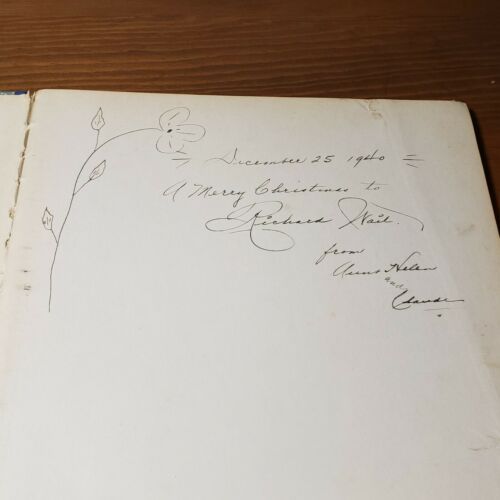 December 25 1940
A Merry Christmas to
Richard Wait.
from
Aunt Helen
and
Claude